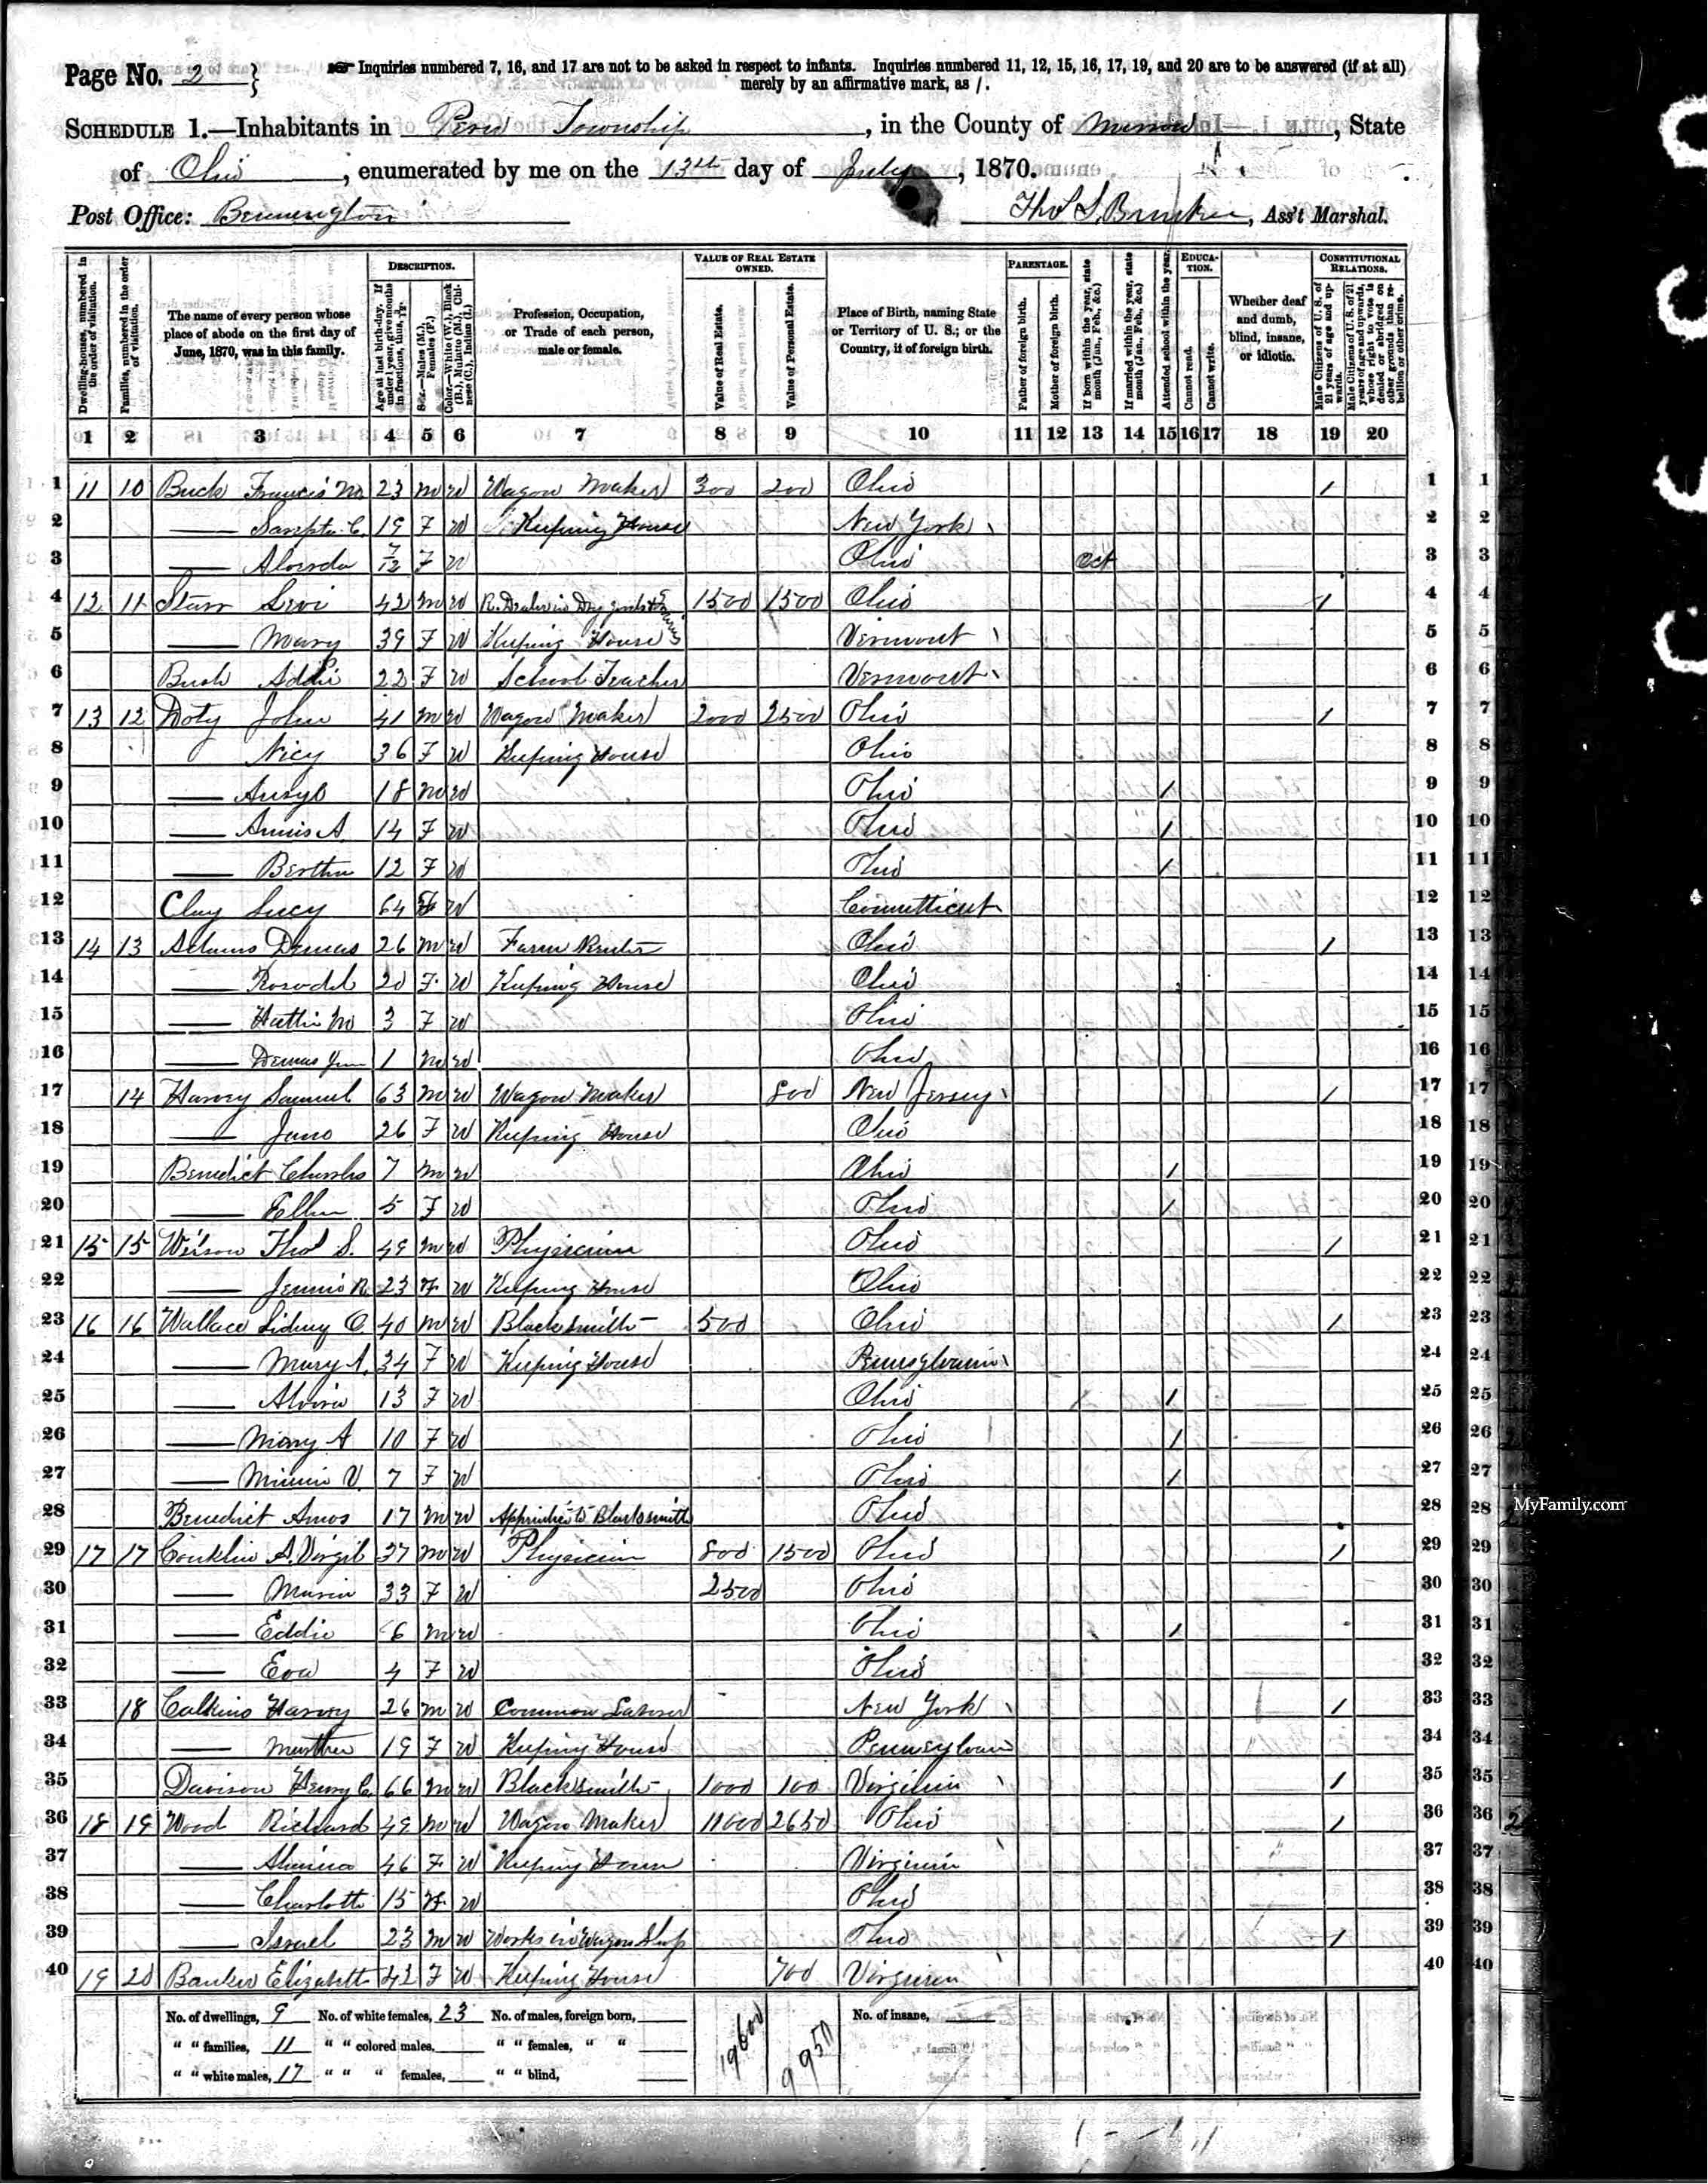 Page No. 2 }
Inquiries numbered 7, 16, and 17 are not to be asked in respect to infants. Inquiries numbered 11, 12, 15, 16, 17, 19, and 20 are to be answered (if at all)
merely by an affirmative mark, as /.
SCHEDULE 1.—Inhabitants in Peru Township, in the County of Morrow, State
of Ohio, enumerated by me on the 13th day of July, 1870.
Post Office: Bennington Thos S. Bunker, Ass't Marshal.
Dwelling-houses, numbered in the order of visitation.
Families, numbered in the order of visitation.
The name of every person whose place of abode on the first day of June, 1870, was in this family.
DESCRIPTION.
Age at last birth-day. If under 1 year, give months in fractions, thus, 3/12.
Sex.—Males (M.), Females (F.)
Color.—White (W.), Black (B.), Mulatto (M.), Chinese (C.), Indian (I.)
Profession, Occupation, or Trade of each person, male or female.
VALUE OF REAL ESTATE OWNED.
Value of Real Estate.
Value of Personal Estate.
Place of Birth, naming State or Territory of U. S.; or the Country, if of foreign birth.
PARENTAGE.
Father of foreign birth.
Mother of foreign birth.
If born within the year, state month (Jan., Feb., &c.)
If married within the year, state month (Jan., Feb., &c.)
Attended school within the year.
EDUCATION.
Cannot read.
Cannot write.
Whether deaf and dumb, blind, insane, or idiotic.
CONSTITUTIONAL RELATIONS.
Male Citizens of U. S. of 21 years of age and upwards.
Male Citizens of U. S. of 21 years of age and upwards, whose right to vote is denied or abridged on other grounds than rebellion or other crime.
1 2 3 4 5 6 7 8 9 10 11 12 13 14 15 16 17 18 19 20
1 11 10 Buck Francis M 23 M W Wagon Maker 300 200 Ohio / 1 1
2 —— C. 19 F W Keeping House New York 2 2
3 —— 7/12 F W Ohio Oct 3 3
4 12 11 Starr Levi 42 M W R. Dealer in Dry goods 1500 1500 Ohio / 4 4
5 —— Mary 39 F W Keeping House Vermont 5 5
6 Bush Addie 22 F W School Teacher Vermont 6 6
7 13 12 Doty John 41 M W Wagon Maker 2000 2500 Ohio / 7 7
8 Nicy 36 F W Keeping House Ohio 8 8
9 —— 18 M W Ohio / 9 9
10 —— Annis A 14 F W Ohio / 10 10
11 —— Bertha 12 F W Ohio / 11 11
12 Clay Lucy 64 F W Connetticut 12 12
13 14 13 Adams Demas 26 M W Farm Renter Ohio / 13 13
14 —— Rosodel 20 F W Keeping House Ohio 14 14
15 —— Hattie M 3 F W Ohio 15 15
16 —— Demas Jun 1 M W Ohio 16 16
17 14 Harvey Samuel 63 M W Wagon Maker 800 New Jersey / 17 17
18 —— Jane 26 F W Keeping House Ohio 18 18
19 Benedict Charles 7 M W Ohio / 19 19
20 —— Ellen 5 F W Ohio / 20 20
21 15 15 Thos S. 49 M W Physician Ohio / 21 21
22 —— Jennie R. 23 F W Keeping House Ohio 22 22
23 16 16 Wallace Sidney O. 40 M W Blacksmith 500 Ohio / 23 23
24 —— Mary A. 34 F W Keeping House Pennsylvania 24 24
25 —— Alvira 13 F W Ohio / 25 25
26 —— Mary A 10 F W Ohio / 26 26
27 —— Minnie V. 7 F W Ohio / 27 27
28 Benedict Amos 17 M W Apprentice to Blacksmith Ohio 28 28 MyFamily.com
29 17 17 Conklin A. Virgil 37 M W Physician 800 1500 Ohio / 29 29
30 —— Maria 33 F W 2500 Ohio 30 30
31 —— Eddie 6 M W Ohio / 31 31
32 —— Eva 4 F W Ohio 32 32
33 18 Calkins Harvey 26 M W Common Laborer New York / 33 33
34 —— Martha 19 F W Keeping House Pennsylvan 34 34
35 Davison Henry C. 66 M W Blacksmith 1000 100 Virginia / 35 35
36 18 19 Wood Richard 49 M W Wagon Maker 11000 2650 Ohio / 36 36 2
37 —— Almina 46 F W Keeping House Virginia 37 37
38 —— Charlotte 15 F W Ohio 38 38
39 —— Israel 23 M W Works in Wagon Shop Ohio / 39 39
40 19 20 Banker Elizabeth 42 F W Keeping House 700 Virginia 40 40
No. of dwellings, 9 No. of white females, 23 No. of males, foreign born, 19600 9950 No. of insane,
" " families, 11 " " colored males, " " females, " "
" " white males, 17 " " " females, " " blind,